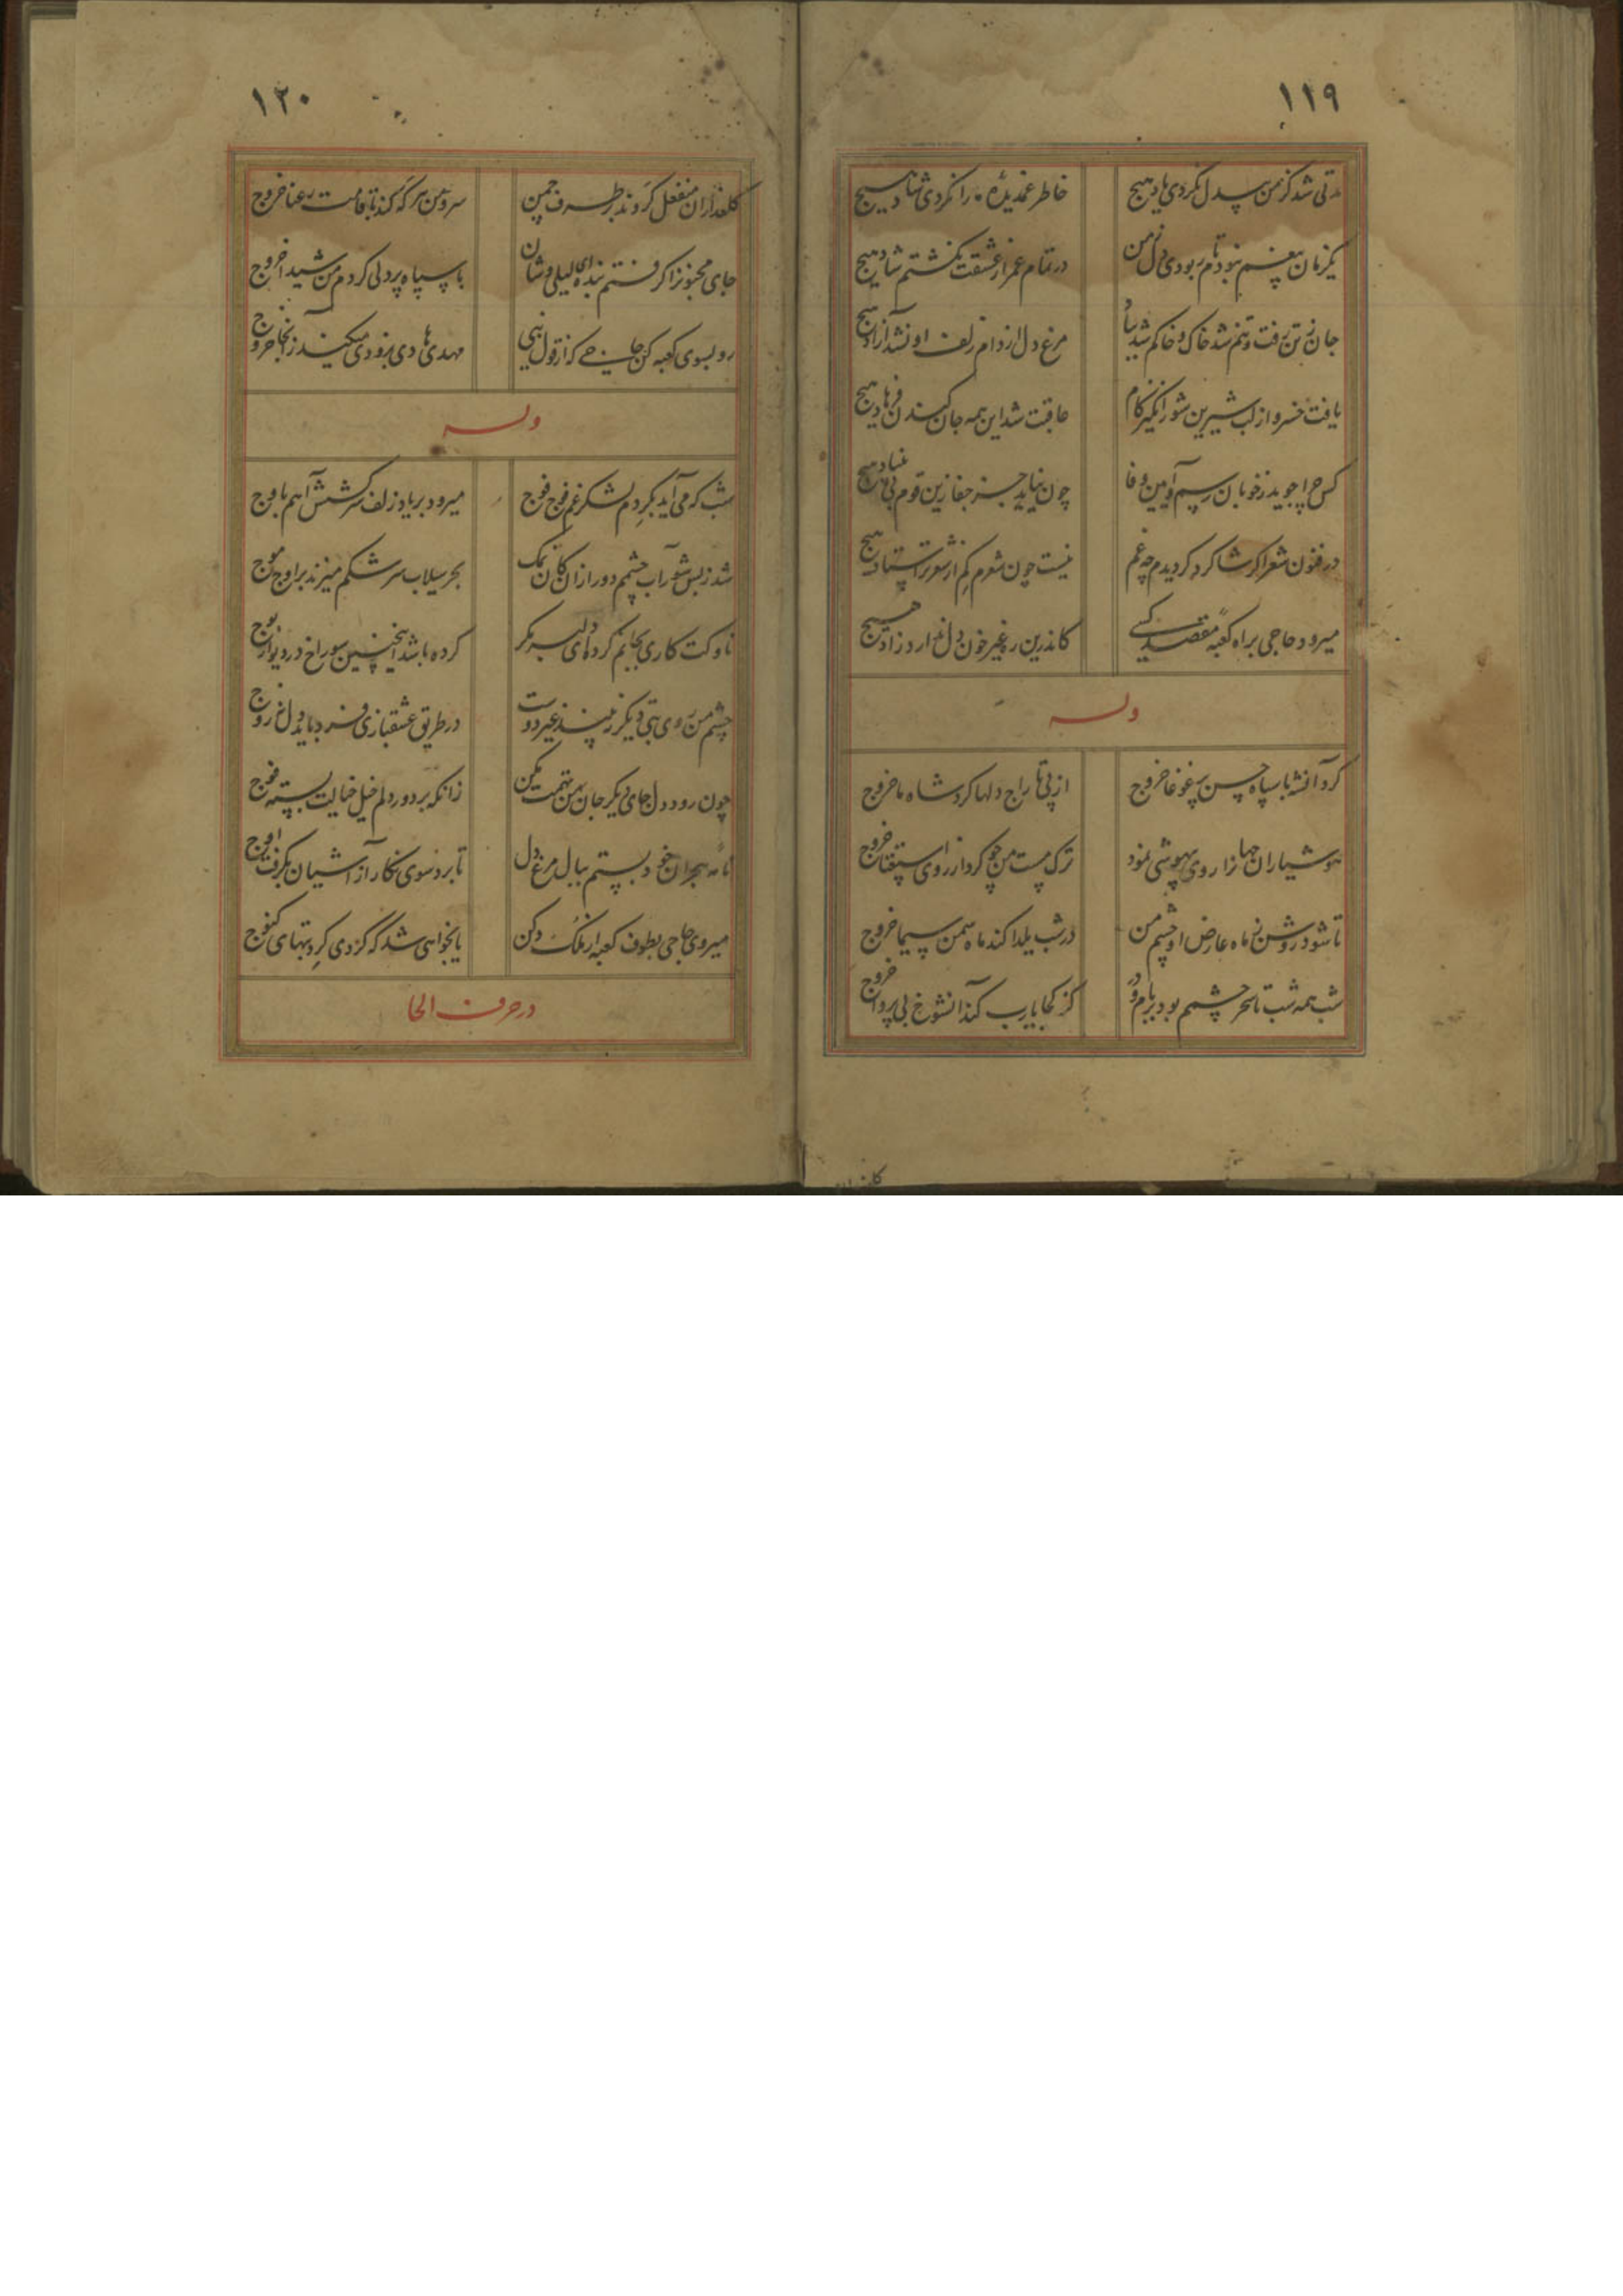 ۱۱۹
مدتی شد کز من بیدل نکردی یاد هیچ
خاطر غمدیده را نکردی شاد هیچ
یکزمان بیغم نبودم تا ربودی دل ز من
در تمام عمر از عشقت نگشتم شاد هیچ
جان ز تن رفت و تنم شد خاک و خاکم شد بباد
مرغ دل از دام زلف او نشد آزاد هیچ
یافت خسرو از لب شیرین شورانگیز کام
عاقبت شد این همه جان کندن فرهاد هیچ
کس چرا جوید ز خوبان رسم و آیین وفا
چون نیاید جز جفا زین قوم بی بنیاد هیچ
در فنون شعر اگر شاگرد گردیدم چه غم
نیست چون شعرم کم از شعر تر استاد هیچ
میرود حاجی براه کعبه مقصد کسی
کاندرین ره غیر خون دل ندارد زاد هیچ
وله
کرد آنشه با سپاه حسن پر غوغا خروج
از پی تاراج دلها کرد شاه ما خروج
هوشیاران جهانرا روی بیهوشی نمود
ترک مست من چو کرد از روی استغنا خروج
تا شود روشن ز ماه عارض او چشم من
در شب یلدا کند ماه سمن سیما خروج
شب همه شب تا سحر چشمم بود بر بام و در
کز کجا یارب کند آنشوخ بی پروا خروج
۱۲۰
گلعذاران منفعل گردند بر طرف چمن
سرو من هر گه کند با قامت رعنا خروج
جای مجنونرا گرفتم بنده ای لیلی وشان
با سپاه پردلی کردم من شیدا خروج
رو بسوی کعبه کن حاجی که از قول نبی
مهدی هادی بزودی میکند زآنجا خروج
وله
شب که می آید بگردم لشکر غم فوج فوج
میرود بر یاد زلف سرکشش آهم باوج
شد ز بس شور آب چشمم دور از آن کان نمک
بحر سیلاب سرشکم میزند بر اوج موج
ناوکت کاری بجانم کرده ای دلبر مگر
کرده باشد اینچنین سوراخ در دیوار
چشم من روی بتی دیگر نبیند غیر دوست
در طریق عشقبازی فرد باید دل ز زوج
چون رود دل جای دیگر جان من تهمت مکن
زانکه بر دور دلم خیل خیالت بسته فوج
نامه هجران خود بستم ببال مرغ دل
تا برد سوی نگار از آشیان بگرفت اوج
میروی حاجی بطوف کعبه از ملک دکن
یا بخواهی شد که گردی گرد بتهای کنوج
در حرف الحا